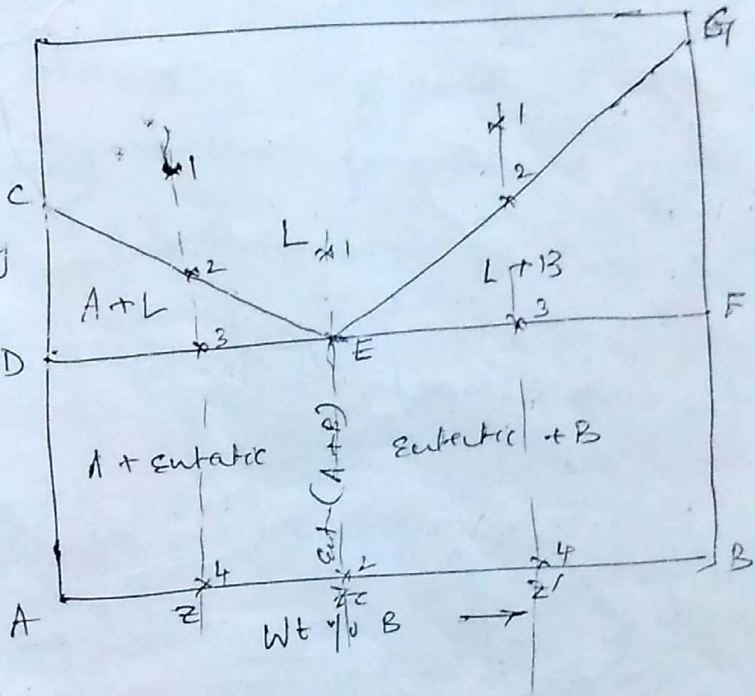 G
1
1
C
2
L
1
2
A+L
L+B
3
3
F
D
E
A + Eutectic
Eut-(A+B)
Eutectic + B
4
2
4
B
A
Z
Z'
Wt % B →